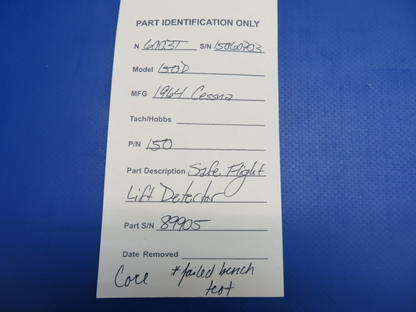 PART IDENTIFICATION ONLY
N 6773T S/N 15060703
Model 150D
MFG 1964 Cessna
Tach/Hobbs
P/N 150
Part Description Safe Flight
Lift Detector
Part S/N 89905
Date Removed
Core *failed bench
test